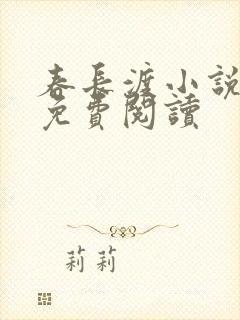 春長渡小說
免費閱讀
莉莉